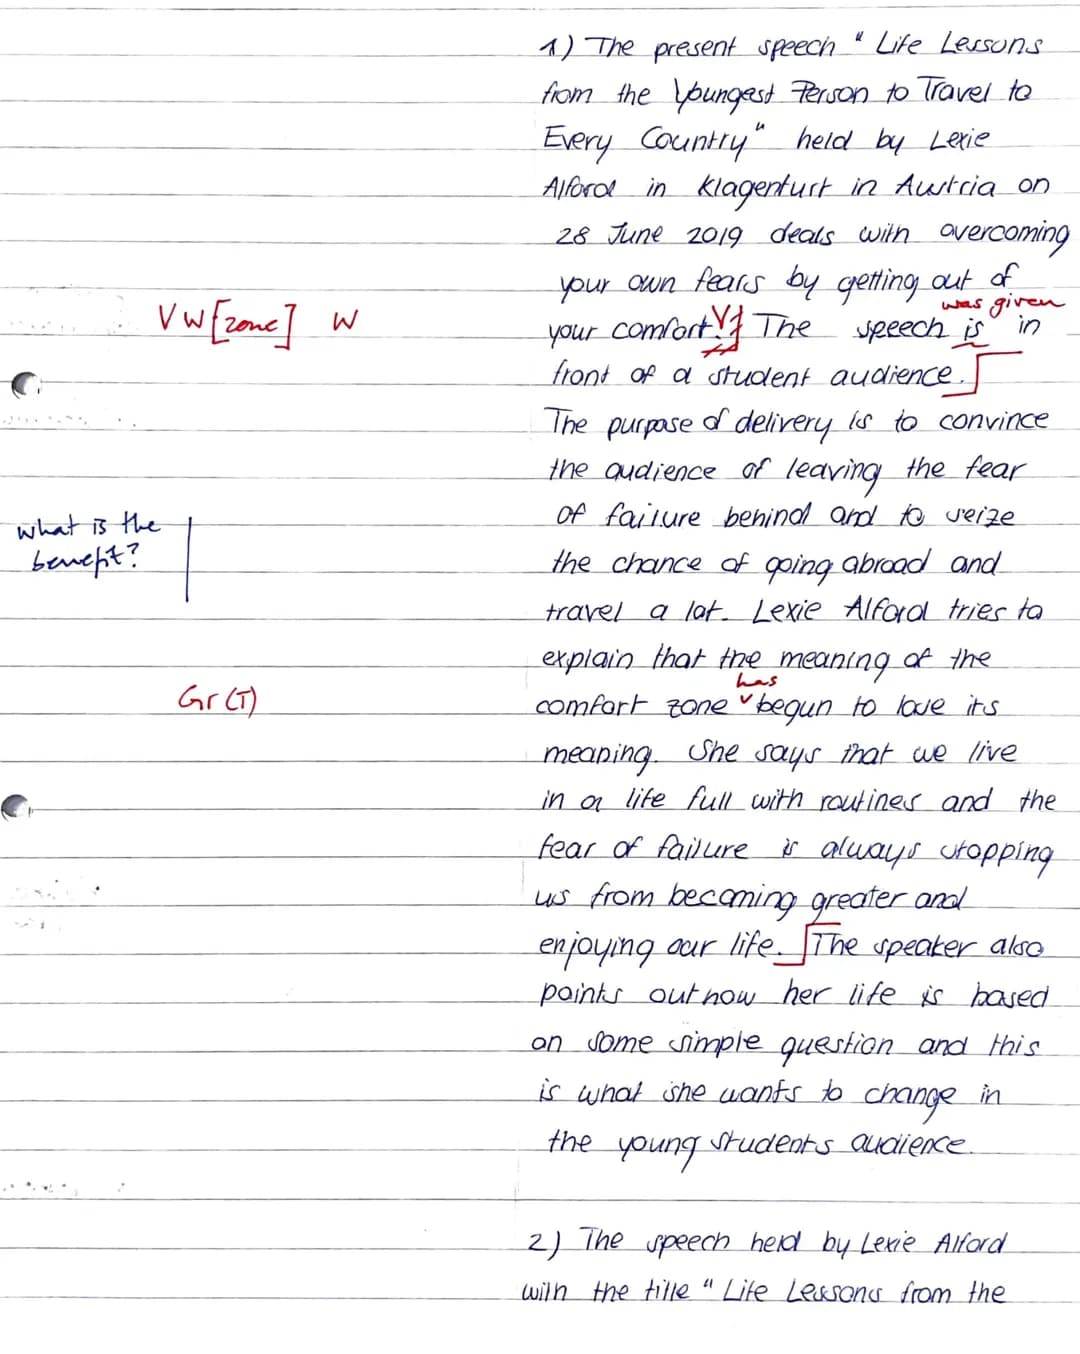 1) The present speech " Life Lessons
from the Youngest Person to Travel to
Every Country" held by Lexie
Alford in Klagenfurt in Austria on
28 June 2019 deals with overcoming
your own fears by getting out of
was given
VW [zone] W
your comfort V! The speech is in
front of a student audience.
The purpose of delivery is to convince
the audience of leaving the fear
what is the
benefit?
of failure behind and to seize
the chance of going abroad and
travel a lot. Lexie Alford tries to
explain that the meaning of the
has
Gr (T)
comfort zone begun to lose its
meaning. She says that we live
in a life full with routines and the
fear of failure is always stopping
us from becoming greater and
enjoying our life. The speaker also
points out how her life is based
on some simple question and this
is what she wants to change in
the young students audience.
2) The speech held by Lexie Alford
with the title " Life Lessons from the